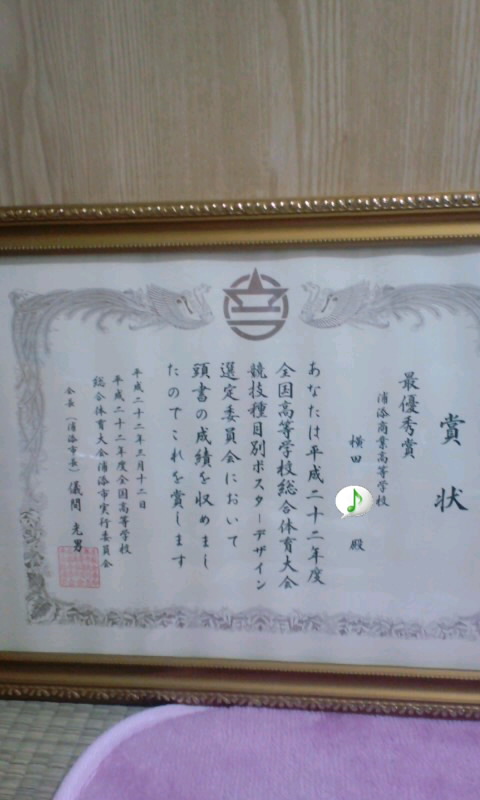 賞状
最優秀賞
浦添商業高等学校
横田 殿
あなたは平成二十二年度
全国高等学校総合体育大会
競技種目別ポスターデザイン
選定委員会において
頭書の成績を収めまし
たのでこれを賞します
平成二十二年三月十二日
平成二十二年度全国高等学校
総合体育大会浦添市実行委員会
会長(浦添市長) 儀間光男